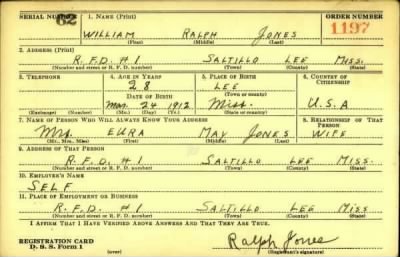 SERIAL NUMBER 62 1. NAME (Print) ORDER NUMBER
WILLIAM RALPH JONES 1197
(First) (Middle) (Last)
2. ADDRESS (Print)
R.F.D. #1 SALTILLO LEE MISS.
(Number and street or R. F. D. number) (Town) (County) (State)
3. TELEPHONE 4. AGE IN YEARS 5. PLACE OF BIRTH 6. COUNTRY OF CITIZENSHIP
28 LEE
DATE OF BIRTH (Town or county)
Mar. 24 1912 Miss. U.S.A
(Exchange) (Number) (Mo.) (Day) (Yr.) (State or country)
7. NAME OF PERSON WHO WILL ALWAYS KNOW YOUR ADDRESS 8. RELATIONSHIP OF THAT PERSON
Mrs. EURA MAY JONES WIFE
(Mr., Mrs., Miss) (First) (Middle) (Last)
9. ADDRESS OF THAT PERSON
R.F.D. #1 SALTILLO LEE MISS.
(Number and street or R. F. D. number) (Town) (County) (State)
10. EMPLOYER'S NAME
SELF
11. PLACE OF EMPLOYMENT OR BUSINESS
R.F.D. #1 SALTILLO LEE MISS
(Number and street or R. F. D. number) (Town) (County) (State)
I AFFIRM THAT I HAVE VERIFIED ABOVE ANSWERS AND THAT THEY ARE TRUE.
REGISTRATION CARD
D. S. S. Form 1 (over) Ralph Jones
(Registrant's signature)